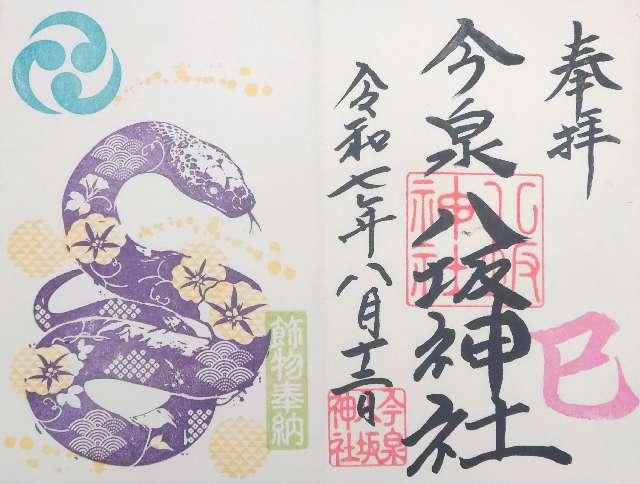 奉拝
巳
今泉八坂神社
八坂神社
令和七年八月十三日
今泉八坂神社
飾物奉納